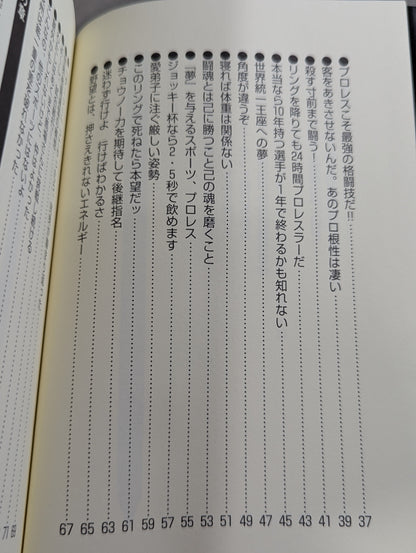 ●プロレスこそ最強の格闘技だ!! 37
●客をあきさせないんだ。あのプロ根性は凄い 39
●殺す寸前まで闘う! 41
●リングを降りても24時間プロレスラーだ 43
●本当なら10年持つ選手が1年で終わるかも知れない 45
●世界統一王座への夢 47
●角度が違うぞ 49
●寝れば体重は関係ない 51
●闘魂とは己に勝つこと己の魂を磨くこと 53
●『夢』を与えるスポーツ、プロレス 55
●ジョッキー杯なら2・5秒で飲めます 57
●愛弟子に注ぐ厳しい姿勢 59
●このリングで死ねたら本望だッ 61
●チョウノ一力を期待して後継指名 63
●迷わず行けよ 行けばわかるさ 65
●野望とは、押さえきれないエネルギー 67
69
71